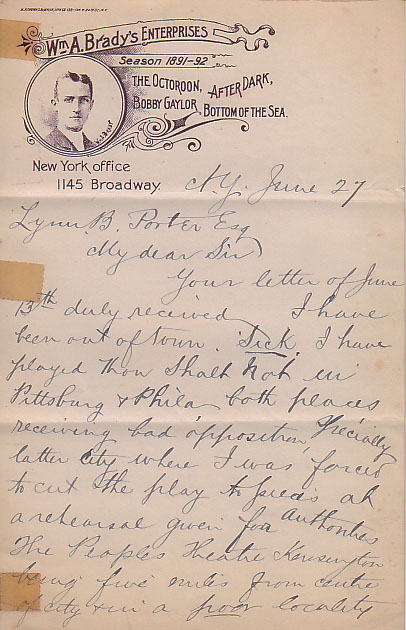 Wm A. Brady's Enterprises
Season 1891-92
The Octoroon, After Dark,
Bobby Gaylor, Bottom of the Sea.
New York office
1145 Broadway
N.Y. June 27
Lynn B. Porter Esq
My dear Sir
Your letter of June
13th duly received I have
been out of town. Sick. I have
played Thou Shalt Not in
Pittsburg & Phila both places
receiving bad opposition, specially
latter city where I was forced
to cut the play to pieces at
a rehearsal given for Authorities
The Peoples Theatre Kensington
being five miles from centre
of city & in a poor locality